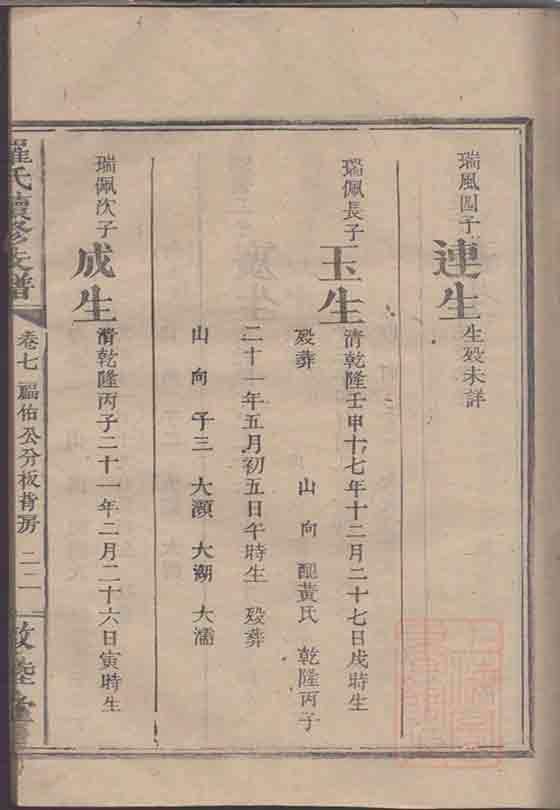 瑞風四子
連生
生歿未詳
瑞佩長子
玉生
清乾隆壬申十七年十二月二十七日戌時生
歿葬 山 向 配黃氏 乾隆丙子
二十一年五月初五日午時生 歿葬
山 向 子三 大灝 大潮 大濡
瑞佩次子
成生
清乾隆丙子二十一年二月二十六日寅時生
羅氏續修支譜
卷七 福佑公分板背房 二二
敦陸堂